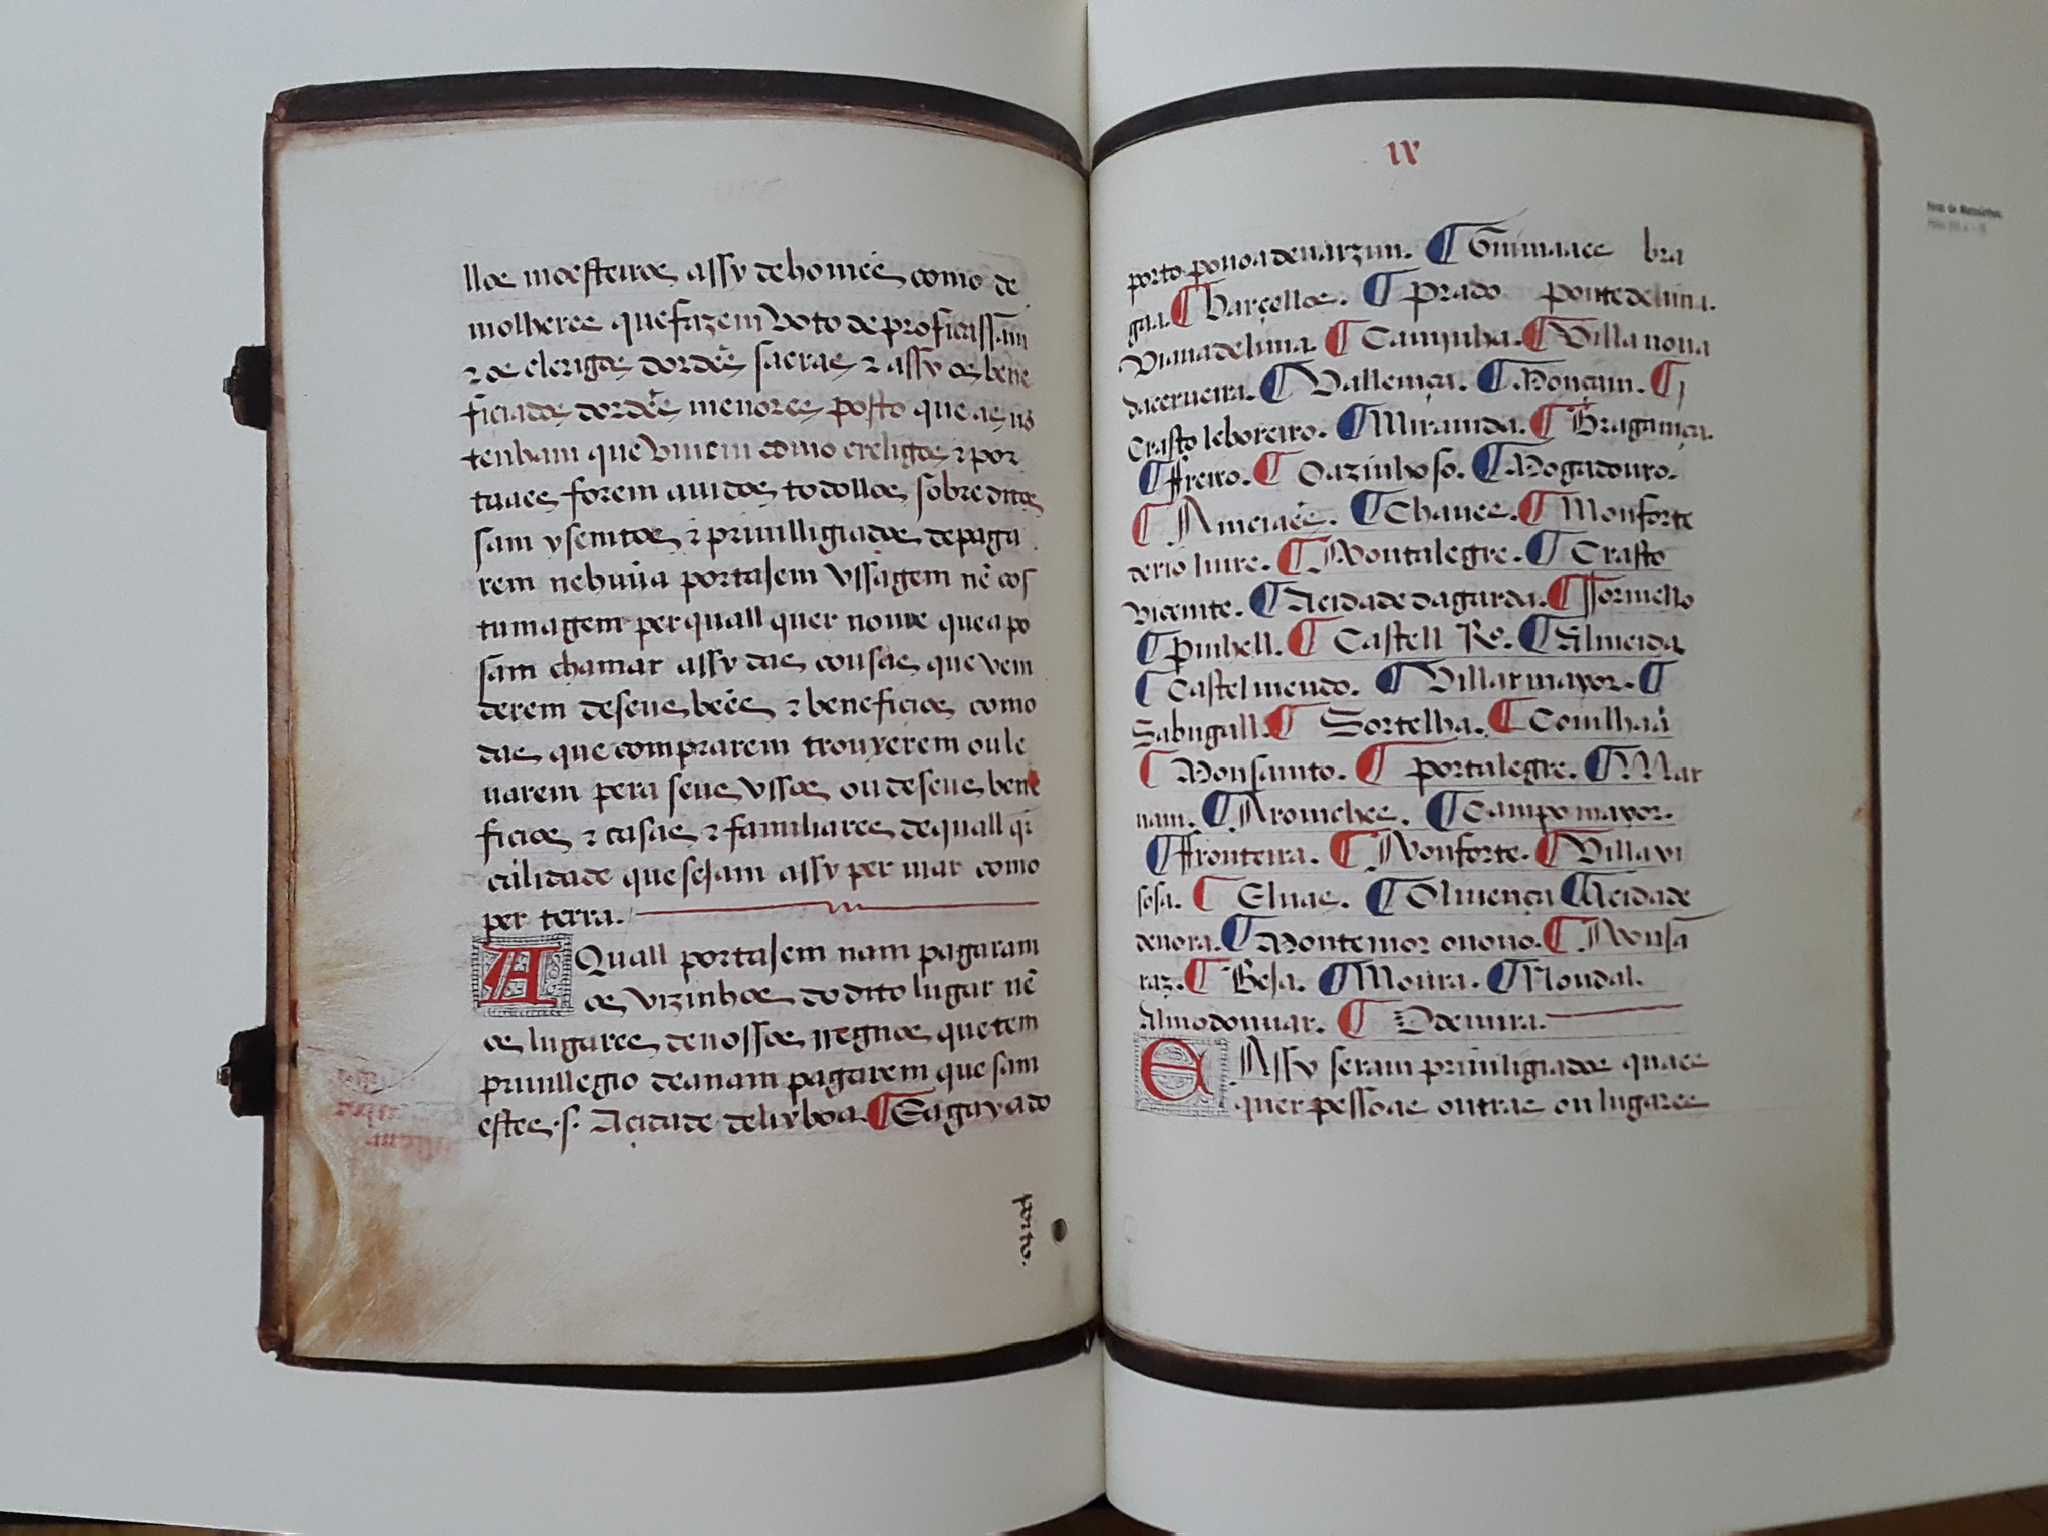 llos moesteiros assy de homẽes como de
molheres que fazem voto de proficassam
⁊ os clerigos dordẽs sacras ⁊ assy os bene
ficiados dordẽes menores posto que as nõ
tenham que viuem como creligos ⁊ por
tuaes forem auidos todollos sobreditos
sam ysemtos ⁊ priuilligiados de paga
rem nehuũa portajem vssagem nẽ cos
tumagem per quall quer nome que a po
sam chamar assy das cousas que vem
derem de seus beẽs ⁊ beneficios como
das que comprarem trouxerem ou le
uarem pera seus vssos ou de seus bene
ficios ⁊ casas ⁊ familiares de quall q̃r
calidade que sejam assy per mar como
per terra.
A Quall portajem nam pagaram
os vizinhos do dito lugar nẽ
os lugares de nossos rregnos que tem
priuillegio de a nam pagarem que sam
estes .s. Acidade de lixboa. ¶ Eagaya do
porto.
ix
porto pouoa de varzim. ¶ Guimaães bra
gaa. ¶ barçellos. ¶ prado ponte de lima.
Viana de lima. ¶ Camynha. ¶ Villa noua
da cerueira. ¶ Vallença. ¶ Monçam. ¶
Crasto leboreiro. ¶ Miranda. ¶ Bragança.
¶ ffreixo. ¶ Oazinhoso. ¶ Mogadouro.
¶ Anciaẽs. ¶ Chaues. ¶ Monforte
de rio liure. ¶ Montalegre. ¶ Crasto
vicente. ¶ Acidade da garda. ¶ Jormello
¶ pinhell. ¶ Castell Ro. ¶ Almeida
¶ Castel mendo. ¶ Villar mayor. ¶
Sabugall. ¶ Sortelha. ¶ Couilhaã
¶ Monsanto. ¶ portalegre. ¶ Mar
uam. ¶ Aronches. ¶ Campo mayor.
¶ ffronteira. ¶ Monforte. ¶ Villa vi
sosa. ¶ Eluas. ¶ Oliuença ¶ Acidade
deuora. ¶ Montemor o nouo. ¶ Monsa
raz. ¶ Beja. ¶ Moura. ¶ Noudal.
Almodouuar. ¶ Odemira.
E Assy seram priuiligiados quaes
quer pessoas outras ou lugares
Foral de Matosinhos.